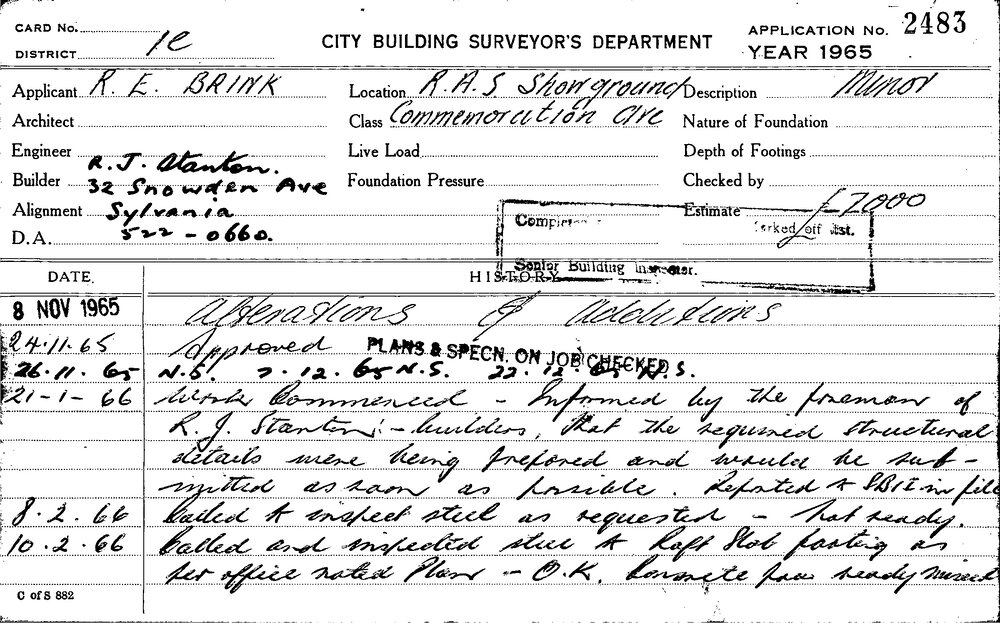 CARD No.
DISTRICT 1C
CITY BUILDING SURVEYOR'S DEPARTMENT
APPLICATION No. 2483
YEAR 1965
Applicant R. E. BRINK
Location R.A.S Showground
Description Minor
Architect
Class Commemoration Ave
Nature of Foundation
Engineer R. J. Stanton.
Live Load
Depth of Footings
Builder 32 Snowden Ave
Foundation Pressure
Checked by
Alignment Sylvania
Estimate £7000
D.A. 522 - 0660.
off list.
Senior Building Inspector.
DATE.
HISTORY
8 NOV 1965 Alterations & Additions
24.11.65 Approved PLANS & SPECN. ON JOB CHECKED
26.11.65 N.S. 7.12.65 N.S. 22.12.65 N.S.
21-1-66 Work Commenced - Informed by the foreman of
R. J. Stanton :- builders, that the required structural
details were being prepared and would be sub-
mitted as soon as possible. Reported to SBI in file
8.2.66 Called to inspect steel as requested - Not ready.
10.2.66 Called and inspected steel to Raft Slab footing as
per office noted Plan - O.K. Concrete ready mixed
C of S 882